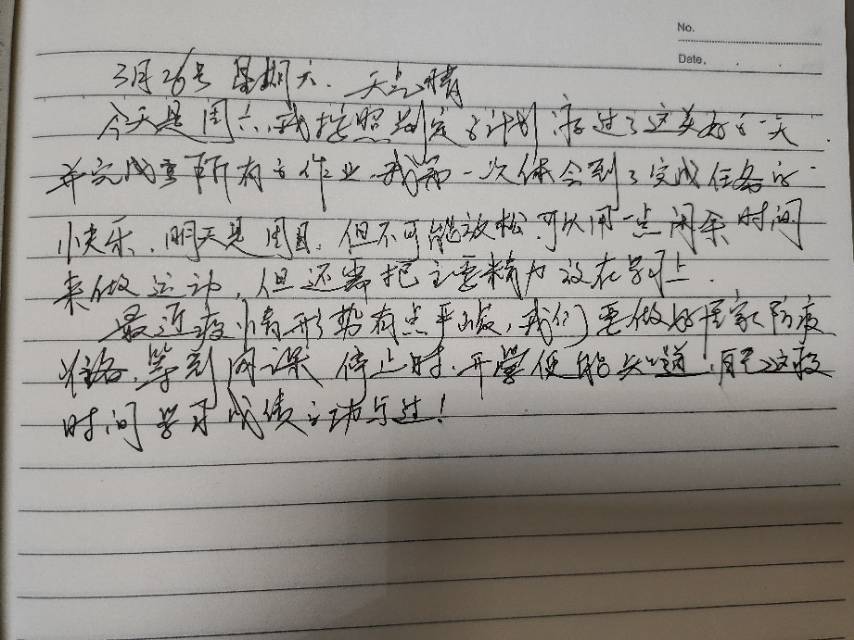 No.
Date.
3月26号 星期六. 天气晴
今天是周六,我按照制定的计划 度过了这美好的一天
并完成了所有的作业.我第一次体会到了完成任务的
小快乐.明天是周日,但不可能放松,可以用一点闲余时间
来做运动,但还需把主要精力放在学习上.
最近疫情形势有点严峻,我们要做好居家防疫
准备.等到网课停止时.开学便能知道,自己这段
时间学习成绩的功与过!